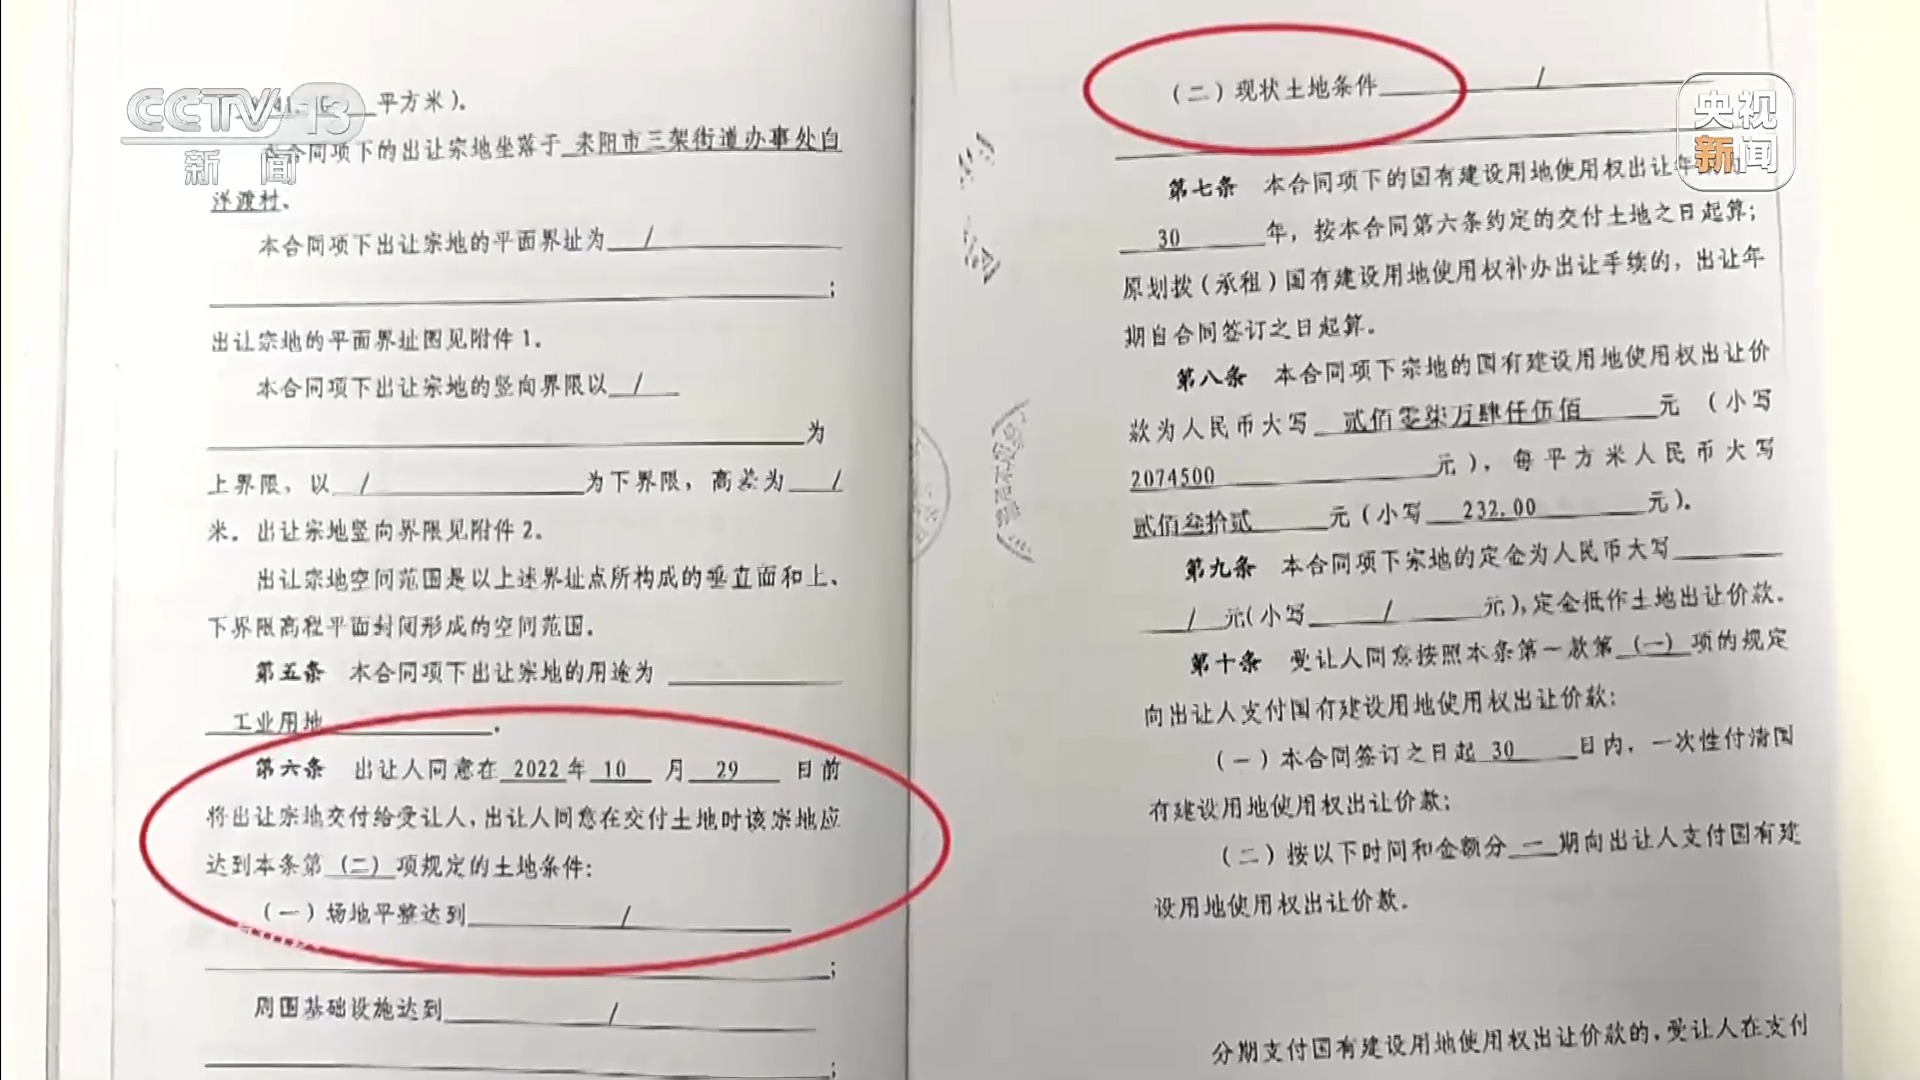 CCTV 13
新闻
央视
新闻
平方米）。
本合同项下的出让宗地坐落于 耒阳市三架街道办事处白
洋渡村。
本合同项下出让宗地的平面界址为 /
；
出让宗地的平面界址图见附件1。
本合同项下出让宗地的竖向界限以 /
为
上界限，以 / 为下界限，高差为 /
米。出让宗地竖向界限见附件2。
出让宗地空间范围是以上述界址点所构成的垂直面和上、
下界限高程平面封闭形成的空间范围。
第五条 本合同项下出让宗地的用途为
工业用地 。
第六条 出让人同意在 2022 年 10 月 29 日前
将出让宗地交付给受让人，出让人同意在交付土地时该宗地应
达到本条第（二）项规定的土地条件：
（一）场地平整达到 /
；
周围基础设施达到 /
；
（二）现状土地条件 /
第七条 本合同项下的国有建设用地使用权出让年
30 年，按本合同第六条约定的交付土地之日起算；
原划拨（承租）国有建设用地使用权补办出让手续的，出让年
期自合同签订之日起算。
第八条 本合同项下宗地的国有建设用地使用权出让价
款为人民币大写 贰佰零柒万肆仟伍佰 元（小写
2074500 元），每平方米人民币大写
贰佰叁拾贰 元（小写 232.00 元）。
第九条 本合同项下宗地的定金为人民币大写
/ 元（小写 / 元），定金抵作土地出让价款。
第十条 受让人同意按照本条第一款第（一）项的规定
向出让人支付国有建设用地使用权出让价款：
（一）本合同签订之日起 30 日内，一次性付清国
有建设用地使用权出让价款；
（二）按以下时间和金额分 一 期向出让人支付国有建
设用地使用权出让价款。
分期支付国有建设用地使用权出让价款的，受让人在支付